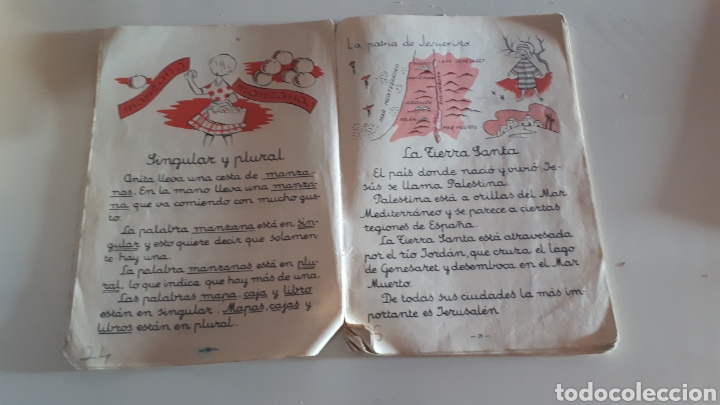 manzana
manzanas
Singular y plural
Anita lleva una cesta de manza-
nas. En la mano lleva una manza-
na que va comiendo con mucho gus-
to.
La palabra manzana está en sin-
gular y esto quiere decir que solamen-
te hay una.
La palabra manzanas está en plu-
ral, lo que indica que hay más de una.
Las palabras mapa, caja y libro
están en singular. Mapas, cajas y
libros están en plural.
24
La patria de Jesucristo
MAR MEDITERRANEO
LAGO GENESARET
MAR MUERTO
La Tierra Santa
El país donde nació y vivió Je-
sús se llama Palestina.
Palestina está a orillas del Mar
Mediterráneo y se parece a ciertas
regiones de España.
La Tierra Santa está atravesada
por el río Jordán, que cruza el lago
de Genesaret y desemboca en el Mar
Muerto.
De todas sus ciudades la más im-
portante es Jerusalén
todocoleccion